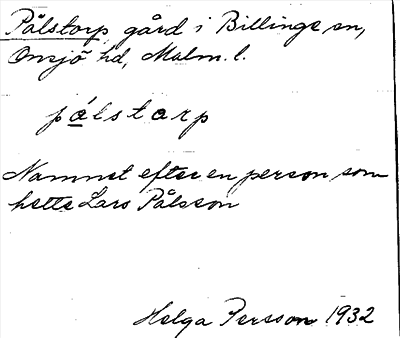 Pålstorp, gård i Billinge sn,
Onsjö hd, Malm. l.
pålstarp
Namnet efter en person som
hette Lars Pålsson
Helga Persson 1932